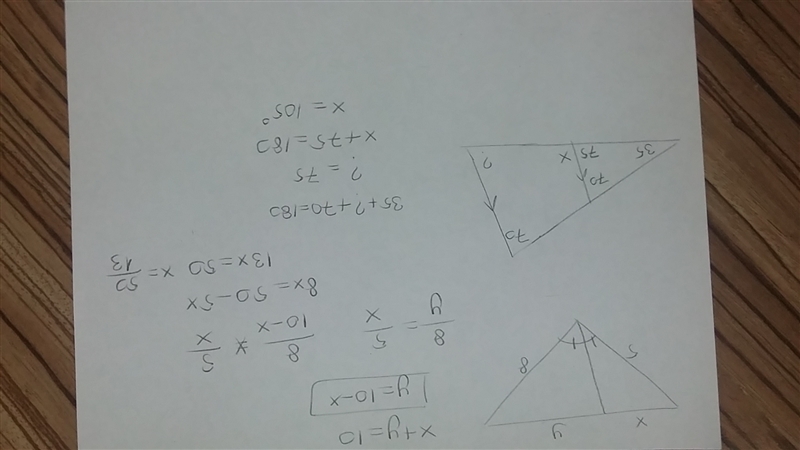 x y
5 8
x+y=10
y=10-x
8/y = 5/x
8/10-x * 5/x
8x=50-5x
13x=50 x=50/13
70
35 75 x ?
70
35+?+70=180
?=75
x+75=180
x=105°